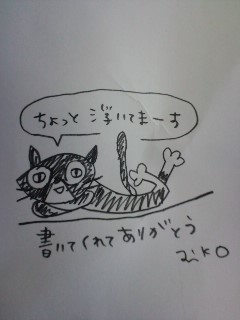 ちょっと 浮いてまーす
書いてくれてありがとう